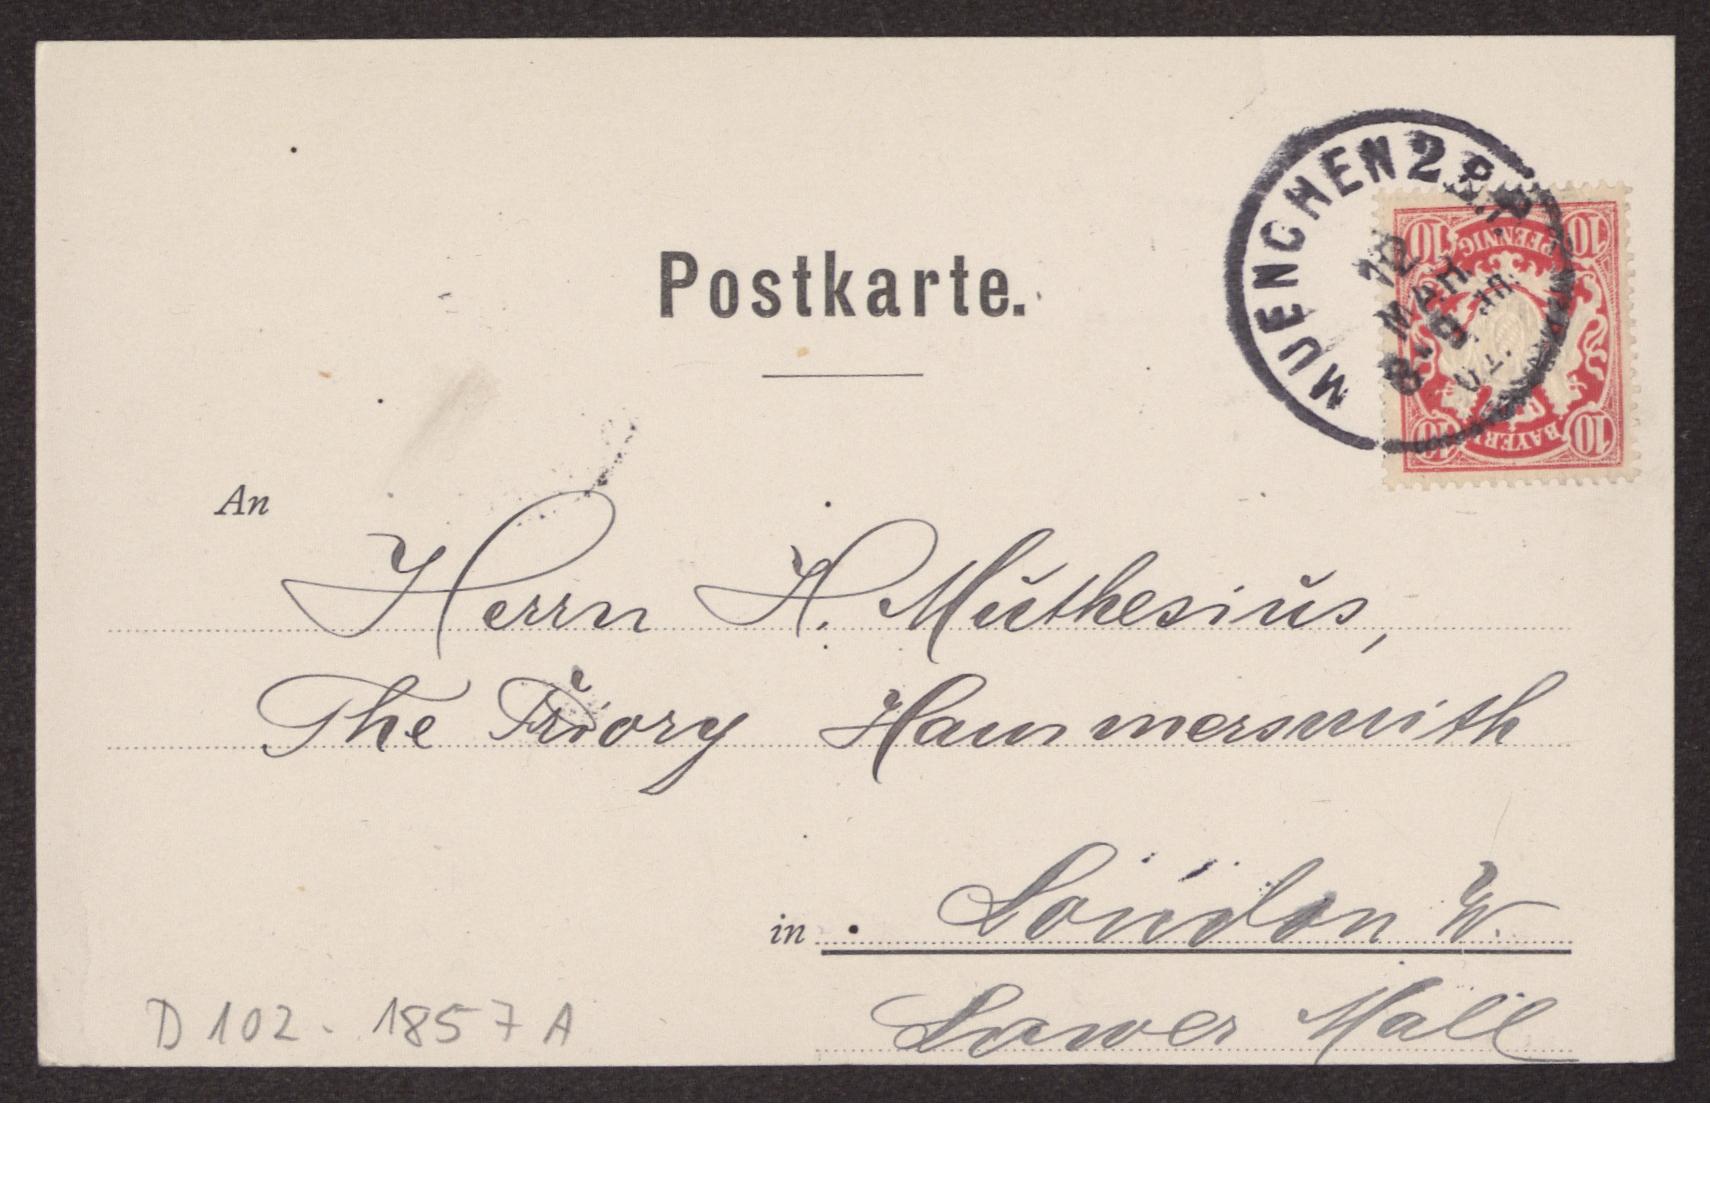 MUENCHEN 2 B.P.
12
MAR
8-9
02.
10 PFENNIG 10
10 BAYERN 10
Postkarte.
An
Herrn H. Muthesius,
The Priory Hammersmith
in London W.
Lower Mall
D 102 - 1857 A